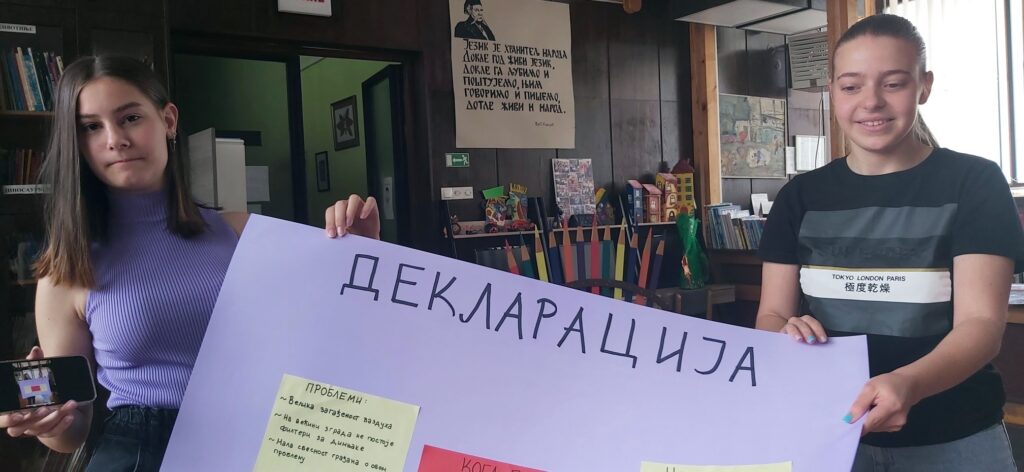 ЈЕЗИК ЈЕ ХРАНИТЕЉ НАРОДА
ДОКЛЕ ГОД ЖИВИ ЈЕЗИК,
ДОКЛЕ ГА ЉУБИМО И
ПОШТУЈЕМО, ЊИМ
ГОВОРИМО И ПИШЕМО,
ДОТЛЕ ЖИВИ И НАРОД.
TOKYO LONDON PARIS
極度乾燥
ДЕКЛАРАЦИЈА
ПРОБЛЕМИ:
~ Велика загађеност ваздуха
~ На већини зграда не постоје
филтери за димњаке
~ Мала свесност грађана о овом
проблему